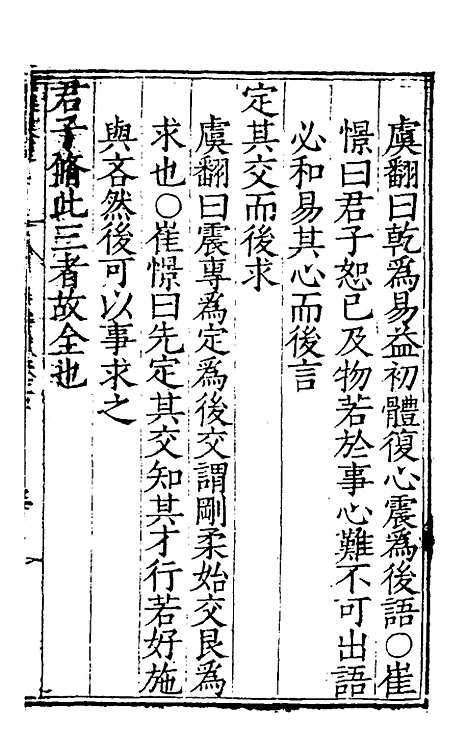 虞翻曰乾爲易益初體復心震爲後語○崔
憬曰君子恕已及物若於事心難不可出語
必和易其心而後言
定其交而後求
虞翻曰震專爲定爲後交謂剛柔始交艮爲
求也○崔憬曰先定其交知其才行若好施
與吝然後可以事求之
君子脩此三者故全也